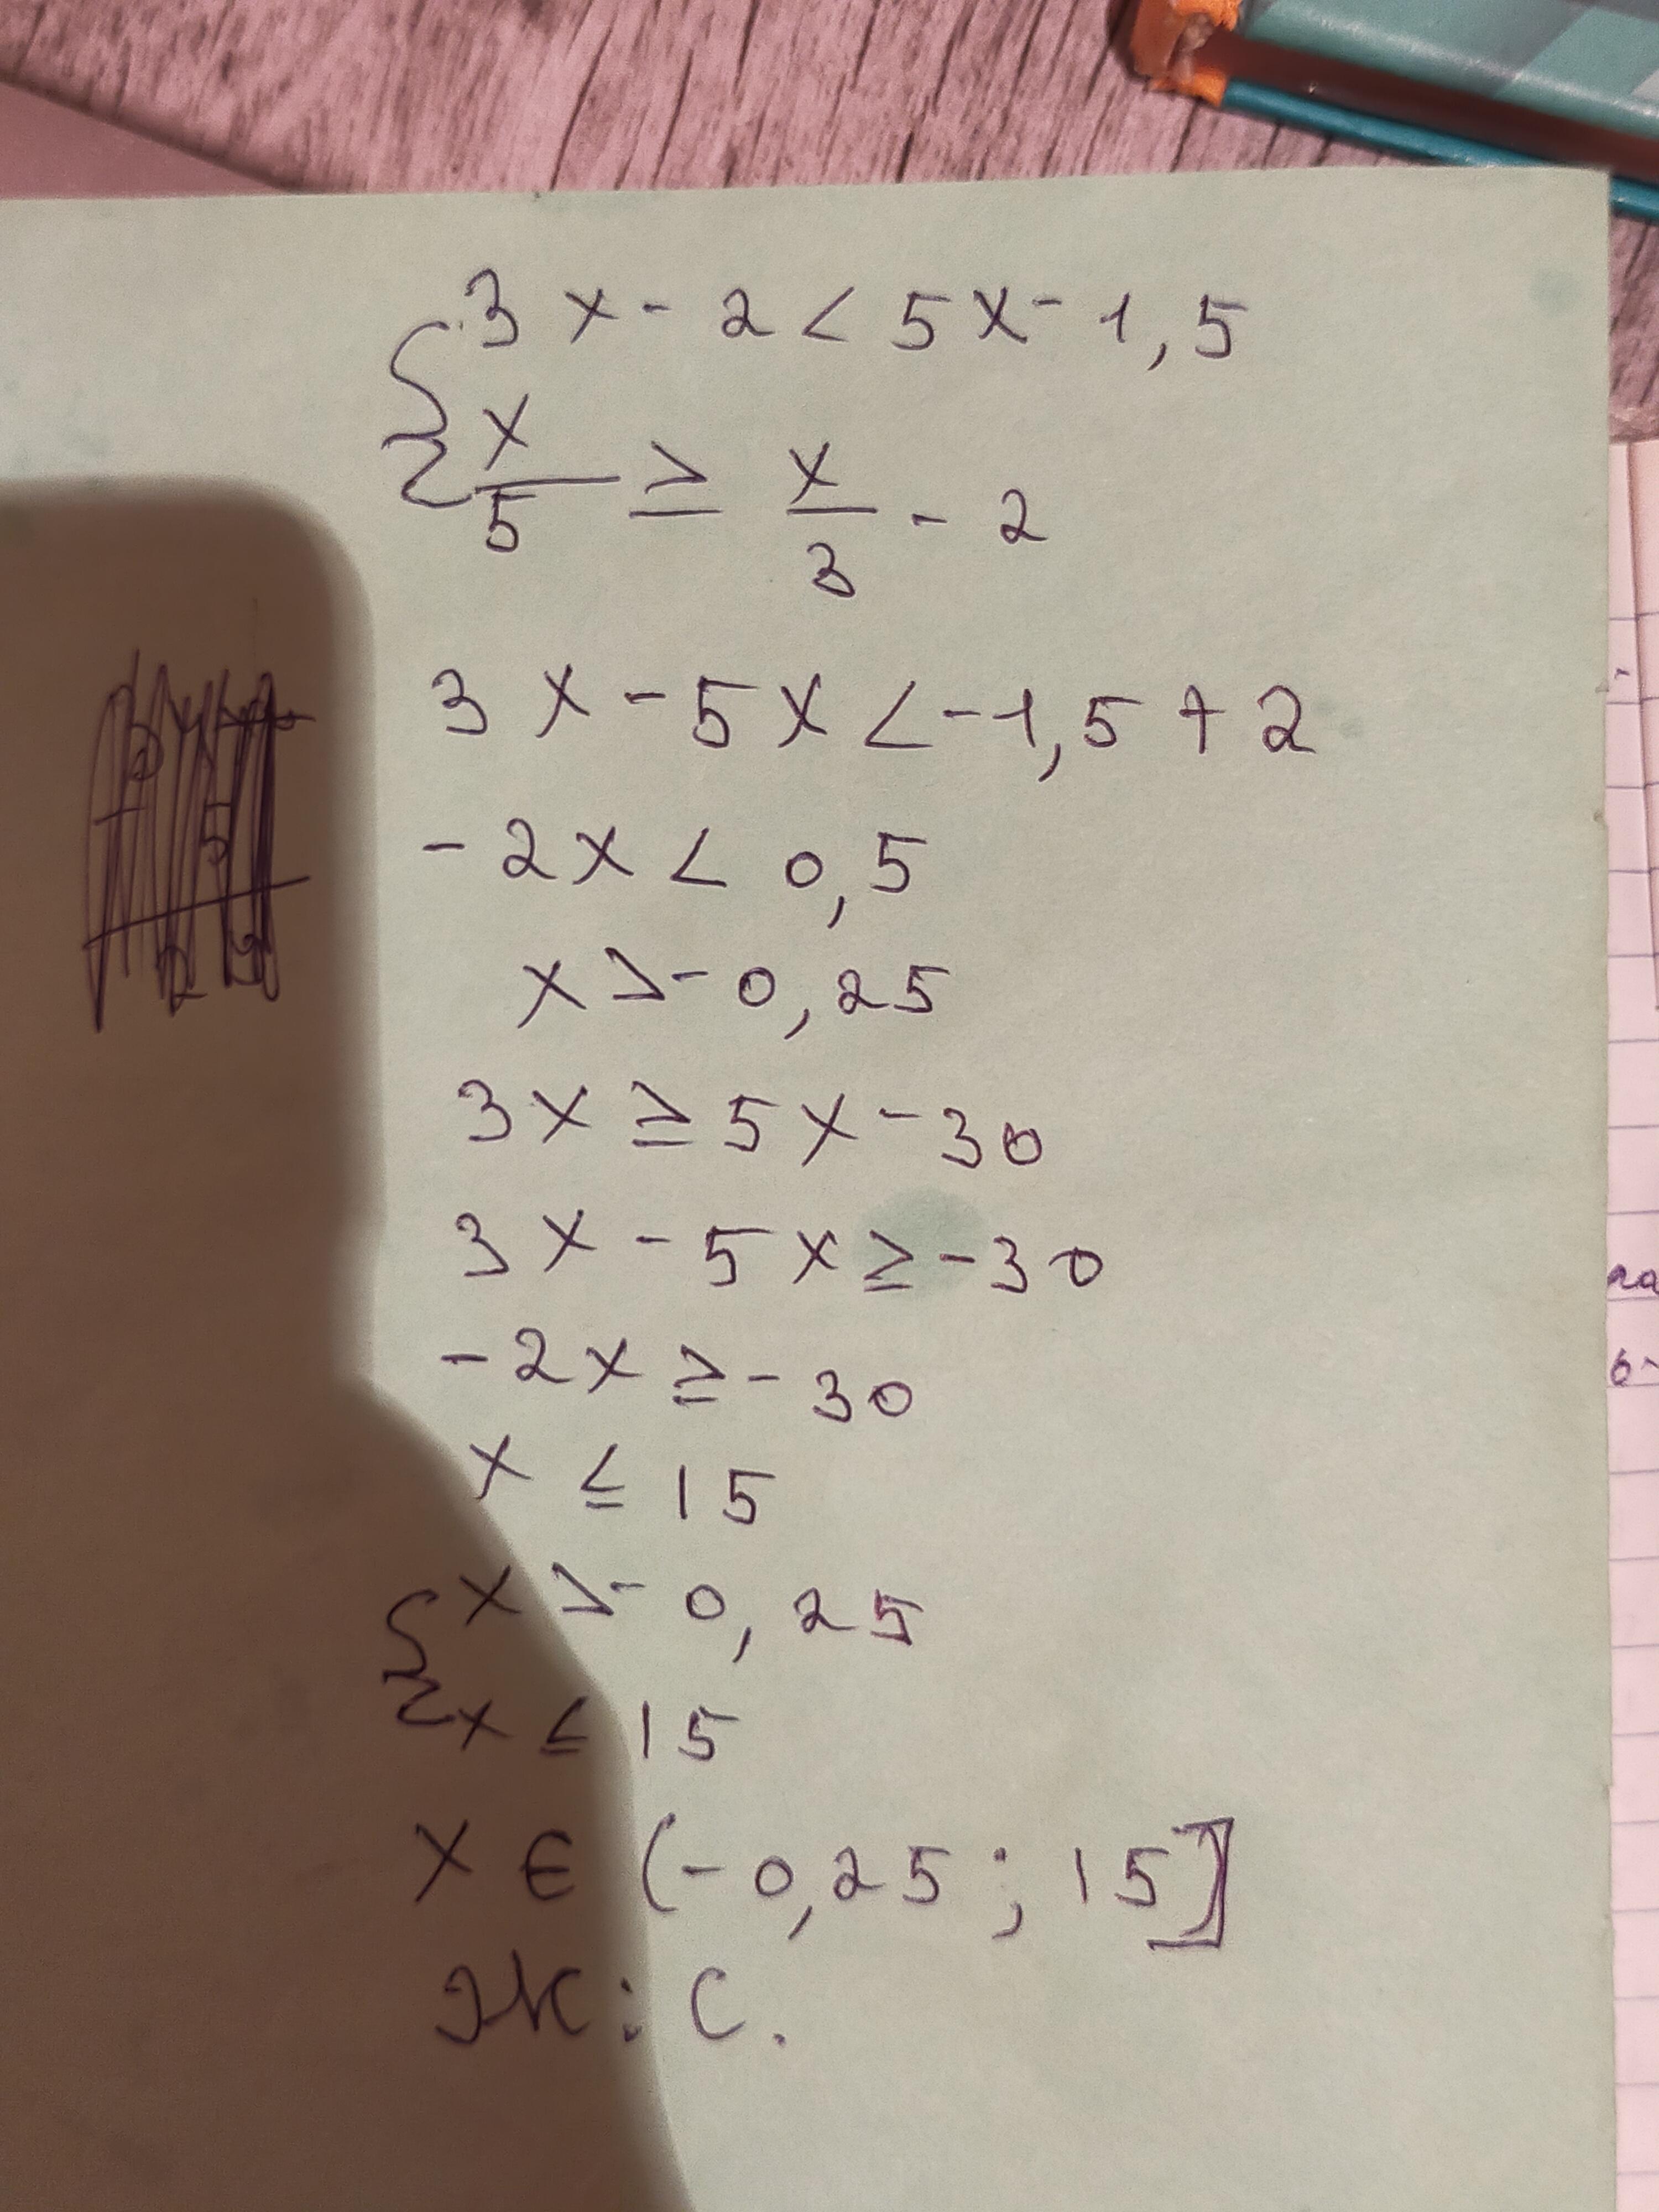 { 3x - 2 < 5x - 1,5
x/5 ≥ x/3 - 2
3x - 5x < -1,5 + 2
-2x < 0,5
x > -0,25
3x ≥ 5x - 30
3x - 5x ≥ -30
-2x ≥ -30
x ≤ 15
{ x > -0,25
x ≤ 15
x ∈ (-0,25; 15]
Ж: C.